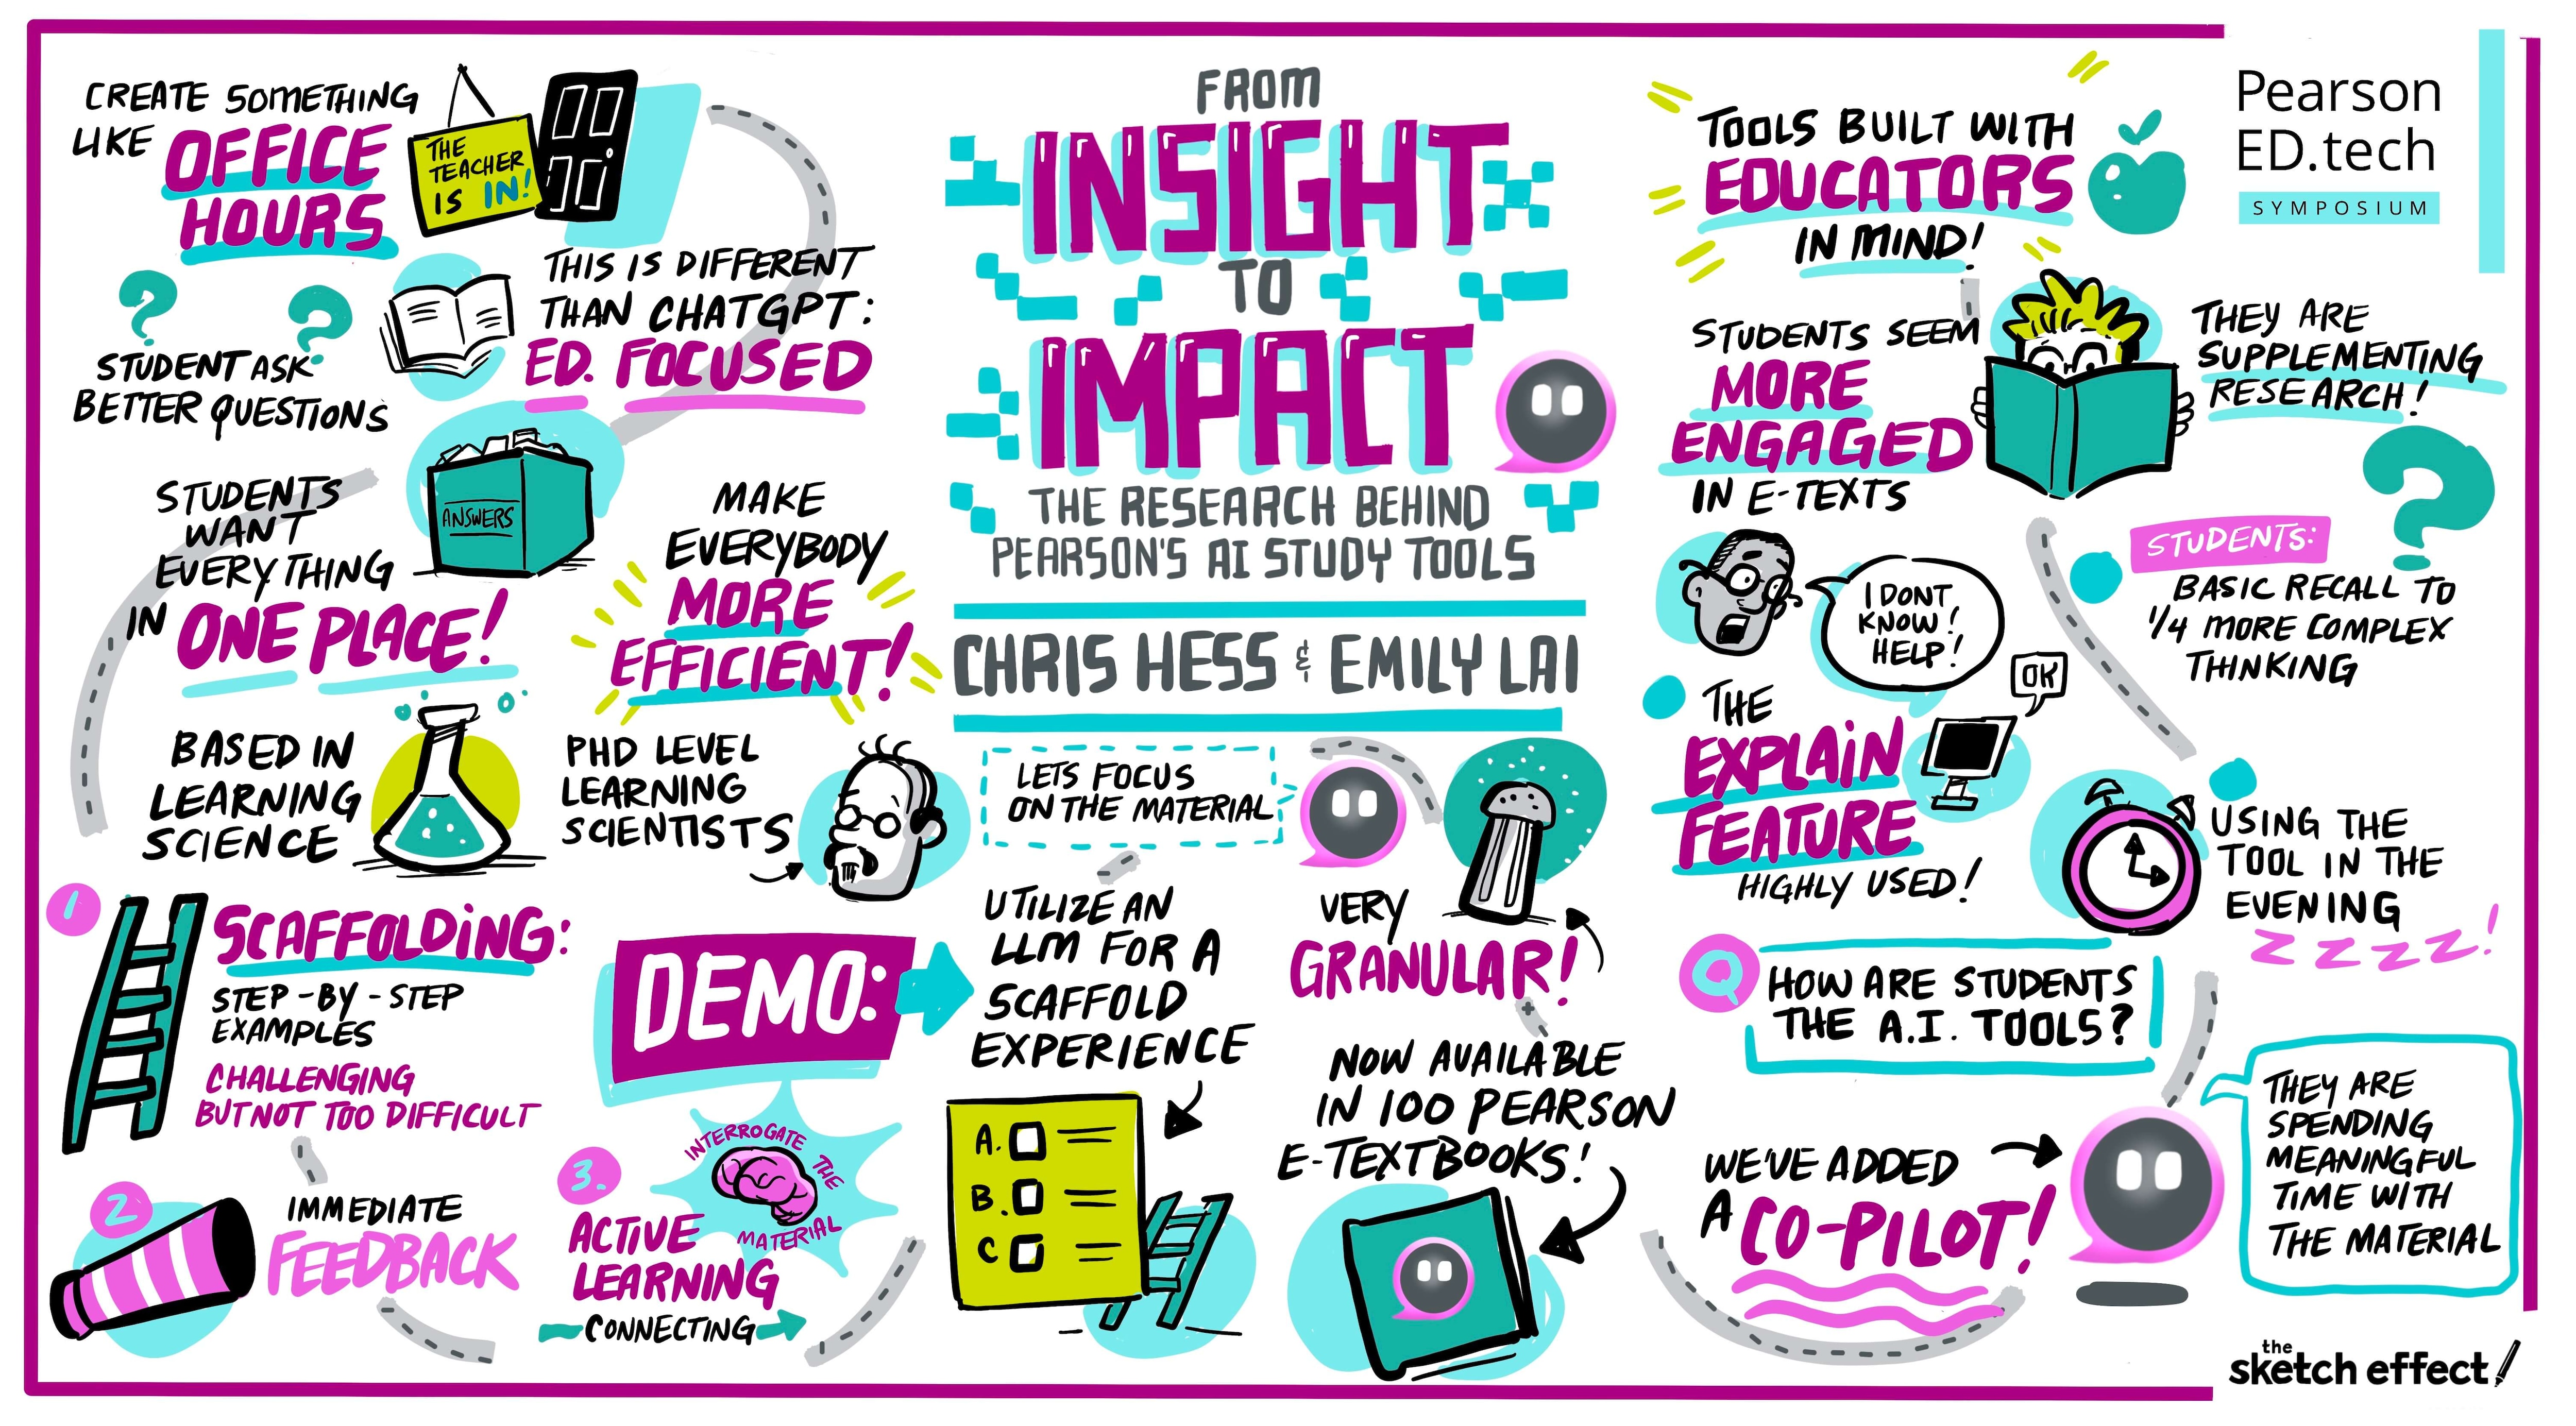 CREATE SOMETHING
LIKE OFFICE
HOURS
THE
TEACHER
IS IN!
STUDENT ASK
BETTER QUESTIONS
THIS IS DIFFERENT
THAN CHATGPT:
ED. FOCUSED
STUDENTS
WANT
EVERYTHING
IN ONE PLACE!
ANSWERS
MAKE
EVERYBODY
MORE
EFFICIENT!
BASED IN
LEARNING
SCIENCE
PHD LEVEL
LEARNING
SCIENTISTS
1
SCAFFOLDING:
STEP-BY-STEP
EXAMPLES
CHALLENGING
BUT NOT TOO DIFFICULT
2
IMMEDIATE
FEEDBACK
3.
ACTIVE
LEARNING
CONNECTING
INTERROGATE THE
MATERIAL
DEMO:
FROM
INSIGHT
TO
IMPACT
THE RESEARCH BEHIND
PEARSON'S AI STUDY TOOLS
CHRIS HESS & EMILY LAI
LETS FOCUS
ON THE MATERIAL
UTILIZE AN
LLM FOR A
SCAFFOLD
EXPERIENCE
A.
B.
C
VERY
GRANULAR!
NOW AVAILABLE
IN 100 PEARSON
E-TEXTBOOKS!
TOOLS BUILT WITH
EDUCATORS
IN MIND!
STUDENTS SEEM
MORE
ENGAGED
IN E-TEXTS
THEY ARE
SUPPLEMENTING
RESEARCH!
I DONT
KNOW!
HELP!
OK
THE
EXPLAIN
FEATURE
HIGHLY USED!
STUDENTS:
BASIC RECALL TO
1/4 MORE COMPLEX
THINKING
USING THE
TOOL IN THE
EVENING
ZZZZ!
Q
HOW ARE STUDENTS
THE A.I. TOOLS?
WE'VE ADDED
A CO-PILOT!
THEY ARE
SPENDING
MEANINGFUL
TIME WITH
THE MATERIAL
Pearson
ED.tech
SYMPOSIUM
the
sketch effect